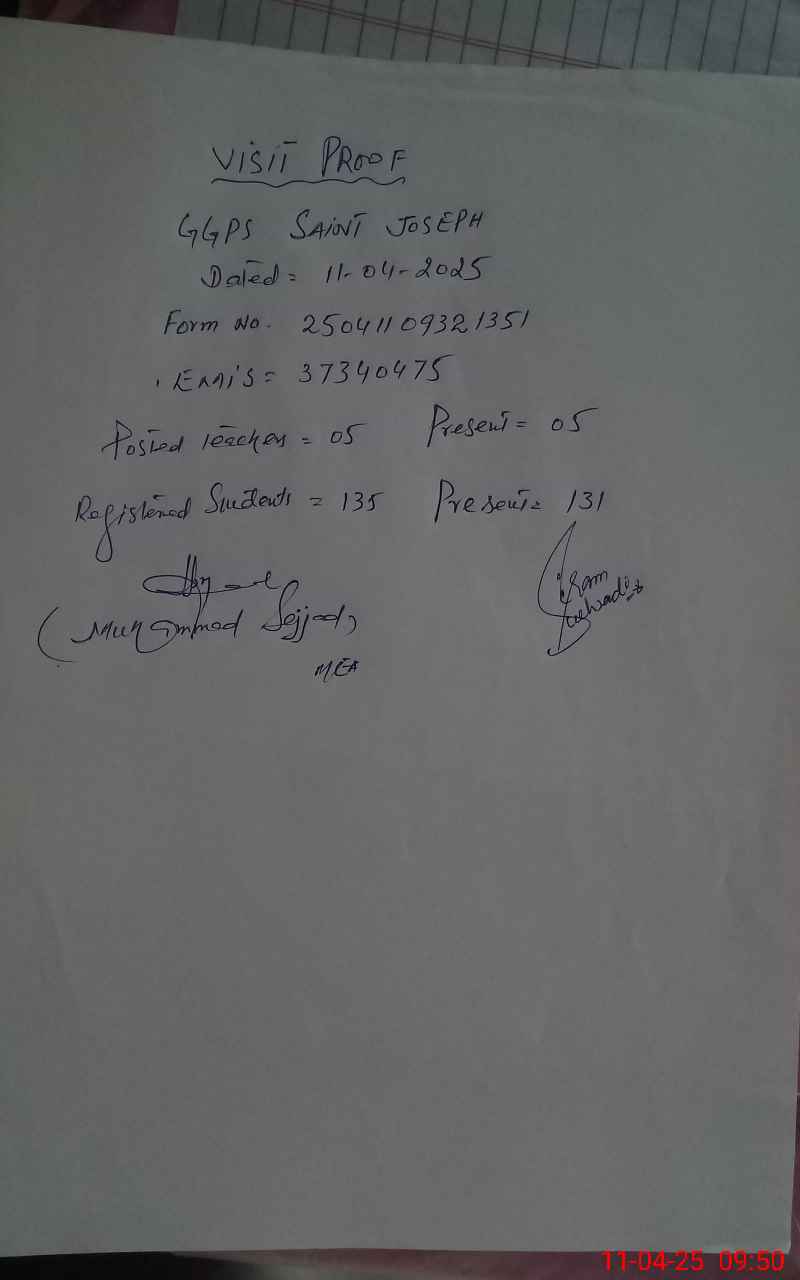 VISIT PROOF
GGPS SAINT JOSEPH
Dated = 11-04-2025
Form No. 25041109321351
EMIS = 37340475
Posted teachers = 05 Present = 05
Registered Students = 135 Present = 131
(Muhammad Sajjad)
MEA
11-04-25 09:50